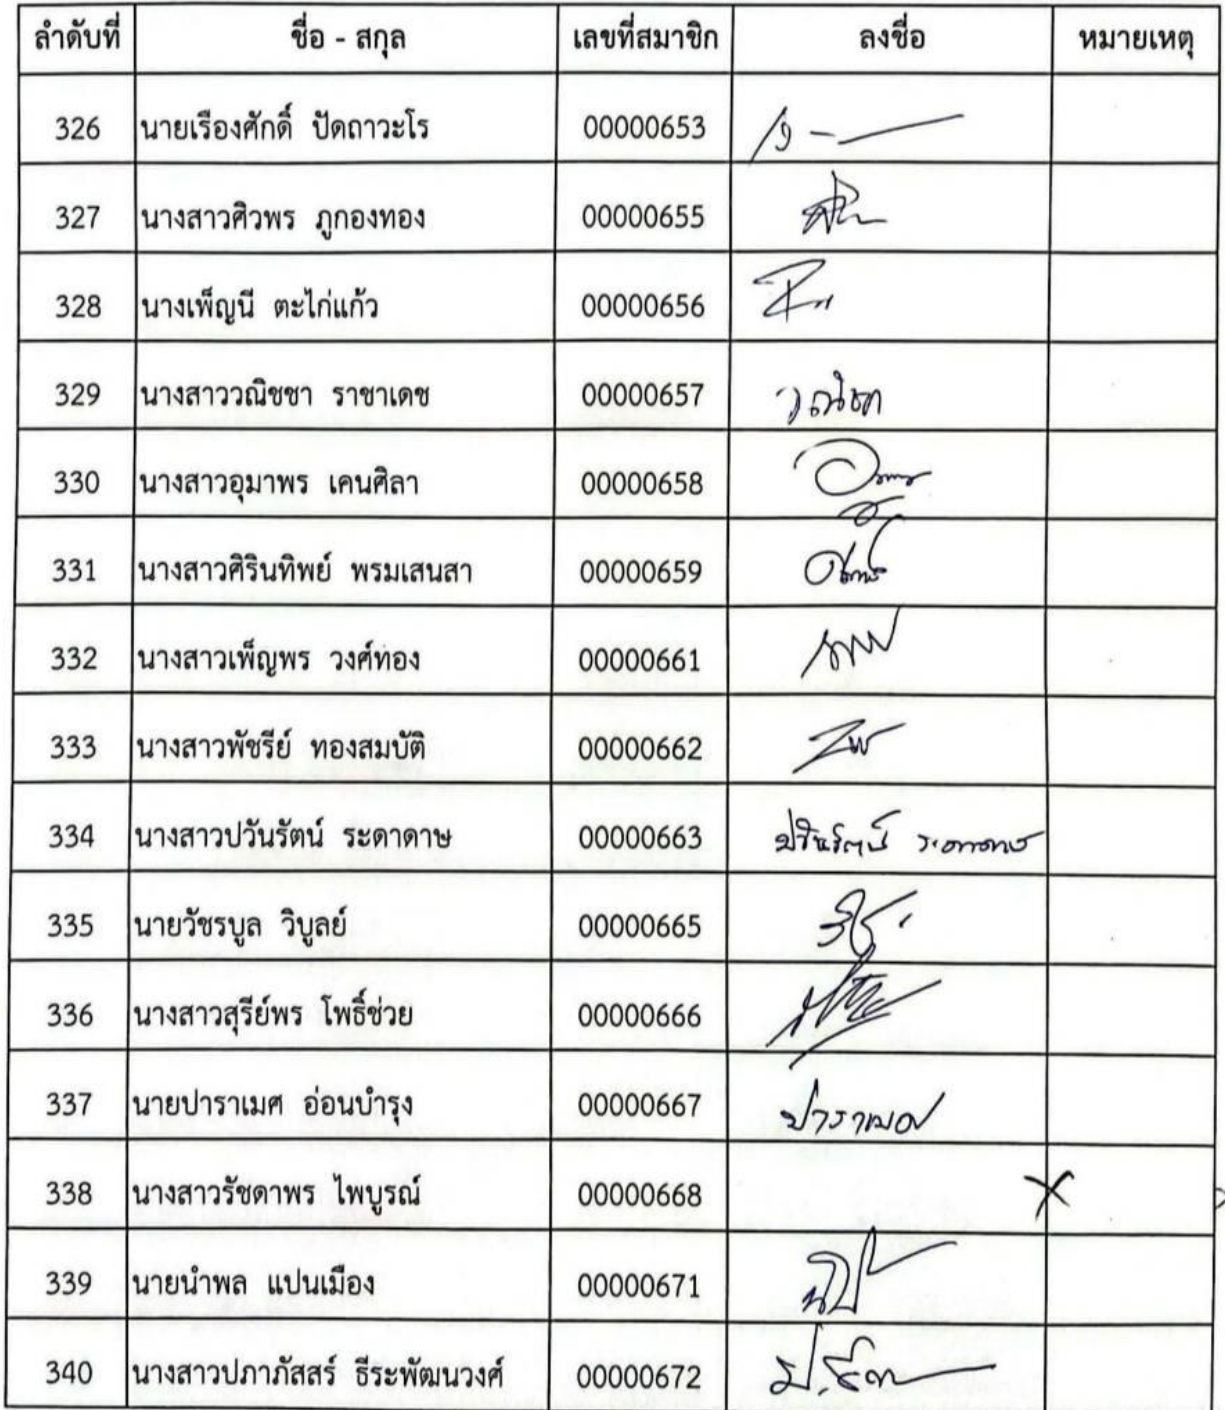 ลำดับที่ ชื่อ - สกุล เลขที่สมาชิก ลงชื่อ หมายเหตุ
326 นายเรืองศักดิ์ ปัดถาวะโร 00000653
327 นางสาวศิวพร ภูกองทอง 00000655
328 นางเพ็ญนี ตะไก่แก้ว 00000656
329 นางสาววณิชชา ราชาเดช 00000657
330 นางสาวอุมาพร เคนศิลา 00000658
331 นางสาวศิรินทิพย์ พรมเสนสา 00000659
332 นางสาวเพ็ญพร วงศ์ทอง 00000661
333 นางสาวพัชรีย์ ทองสมบัติ 00000662
334 นางสาวปวันรัตน์ ระดาดาษ 00000663 ปวันรัตน์ ระดาดาษ
335 นายวัชรบูล วิบูลย์ 00000665
336 นางสาวสุรีย์พร โพธิ์ช่วย 00000666
337 นายปาราเมศ อ่อนบำรุง 00000667 ปาราเมศ
338 นางสาวรัชดาพร ไพบูรณ์ 00000668
339 นายนำพล แปนเมือง 00000671
340 นางสาวปภาภัสสร์ ธีระพัฒนวงศ์ 00000672